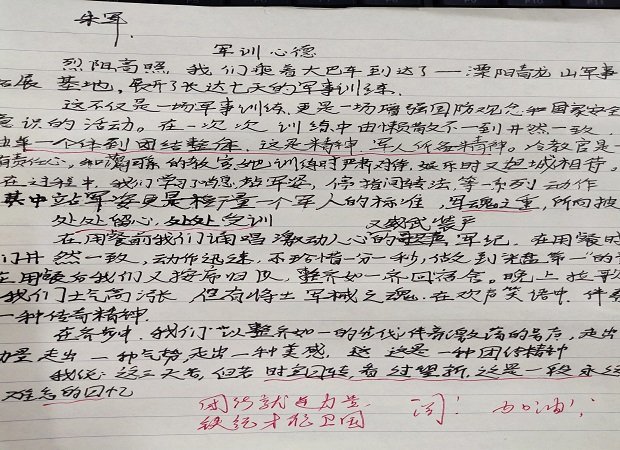 朱军
军训心德
烈阳高照，我们乘着大巴车到达了一溧阳青龙山军事
拓展 基地，展开了长达七天的军事训练.
这不仅是一场军事训练，更是一场增强国防观念和国家安全
意识的活动。在一次次 训练中由懒散不一到井然一致.
由单一个体到团结整体. 这是精神，军人所备精神。冷教官是一
有责任心，和蔼可亲的教官.她训练时严肃对待，娱乐时又坦诚相待。
在过程中，我们学习了 军姿，停指间转法等一系列动作
其中站军姿更是 一个军人的标准，军魂之重，所向披
处处留心，处处受训
在用餐前我们诵唱激动人心的 军纪.在用餐时
们井然一致，动作迅速.不 惜一分一秒，做到 第一的
在用餐后我们又按序归队，整齐如一齐回宿舍。晚上拉歌
我们士气高涨 但有将士军械之魂.在欢声笑语中.体
一种传奇精神.
在 步中.我们以整齐如一的步伐伴高激荡的号声，走出
力量 走出一种气势，走出一种美感. 这是一种团结精神
我 这三天 ，但若时空回转，看过望新，这是一段永远
难忘的回忆
团结就是力量
铁纪才能卫国
阅！ 加油！